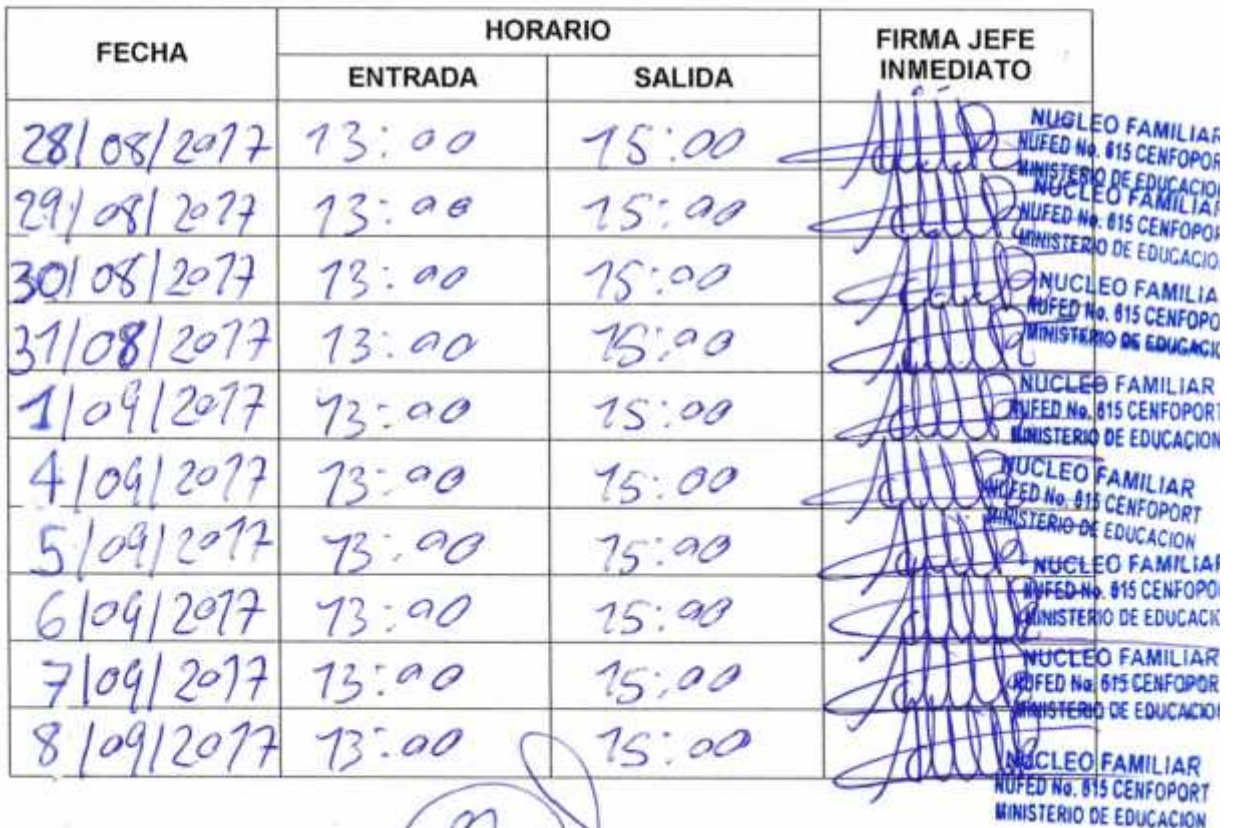 FECHA HORARIO FIRMA JEFE INMEDIATO
ENTRADA SALIDA
28/08/2017 13:00 15:00
NUCLEO FAMILIAR
NUFED No. 615 CENFOPOR
MINISTERIO DE EDUCACION
29/08/2017 13:00 15:00
NUCLEO FAMILIAR
NUFED No. 615 CENFOPOR
MINISTERIO DE EDUCACIO
30/08/2017 13:00 15:00
NUCLEO FAMILIA
NUFED No. 615 CENFOPO
MINISTERIO DE EDUCACIO
31/08/2017 13:00 15:00
1/09/2017 13:00 15:00
NUCLEO FAMILIAR
NUFED No. 615 CENFOPORT
MINISTERIO DE EDUCACION
4/09/2017 13:00 15:00
NUCLEO FAMILIAR
NUFED No. 615 CENFOPORT
MINISTERIO DE EDUCACION
5/09/2017 13:00 15:00
NUCLEO FAMILIAR
NUFED No. 615 CENFOPO
MINISTERIO DE EDUCACIO
6/09/2017 13:00 15:00
7/09/2017 13:00 15:00
NUCLEO FAMILIAR
NUFED No. 615 CENFOPOR
MINISTERIO DE EDUCACION
8/09/2017 13:00 15:00
NUCLEO FAMILIAR
NUFED No. 615 CENFOPORT
MINISTERIO DE EDUCACION